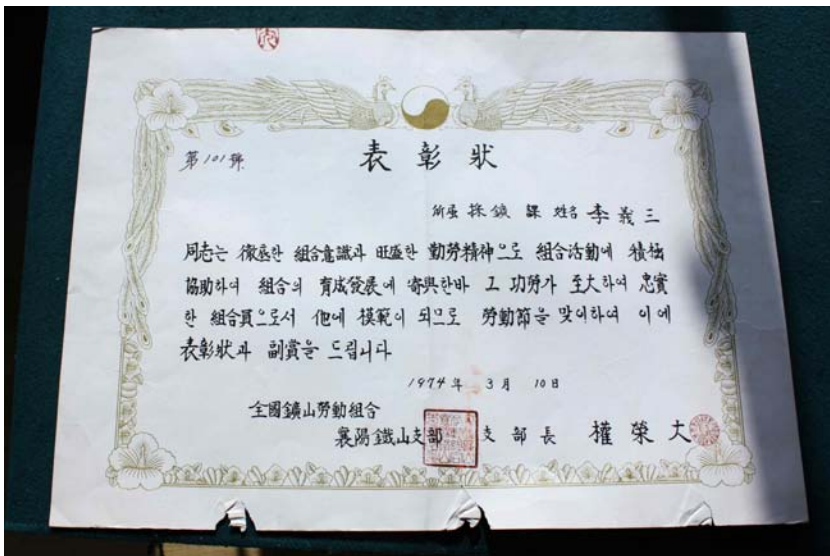 第101號
表彰狀
所屬 採鑛 課 姓名 李義三
同志는 徹底한 組合意識과 旺盛한 勤勞精神으로 組合活動에 積極
協助하여 組合의 育成發展에 寄與한바 그 功勞가 至大하여 忠實
한 組合員으로서 他에 模範이 되므로 勞動節을 맞이하여 이에
表彰狀과 副賞을 드립니다
1974年 3月 10日
全國鑛山勞動組合
襄陽鐵山支部 支部長 權榮大